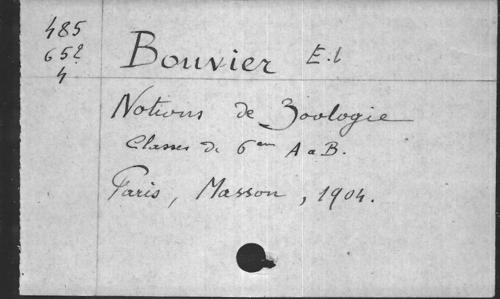 485
652
4
Bouvier E.l
Notions de Zoologie
Classes de 6em A a B.
Paris, Masson, 1904.